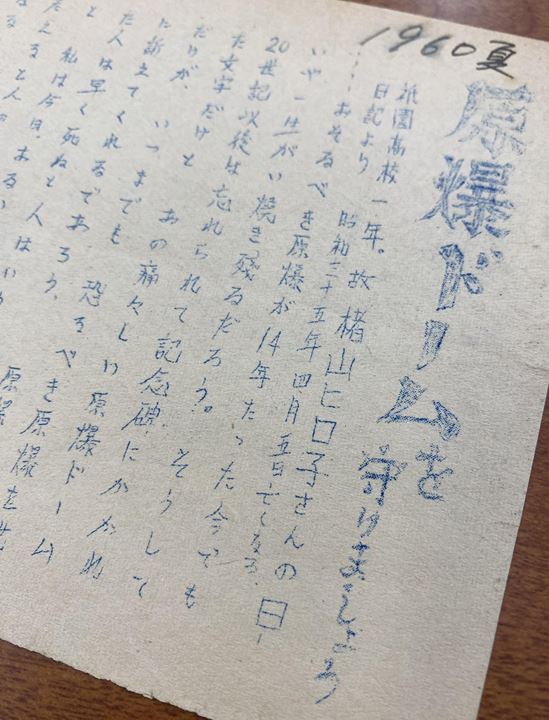 1960夏
原爆ドームを守りましょう
祇園高校 一年。故 楮山ヒロ子さんの日
日記より 昭和三十五年四月五日亡くなる.
……おそるべき原爆が14年たった今でも
いや一生がい焼き残るだろう。そうして
20世紀以後は忘れられて記念碑にかかれ
た文字だけと あの痛々しい原爆ドーム
だけが、いつまでも 恐るべき原爆を世
に訴えてくれるであろう、 原爆
た人は早く死ぬと人はいう
と 私は今日、ある